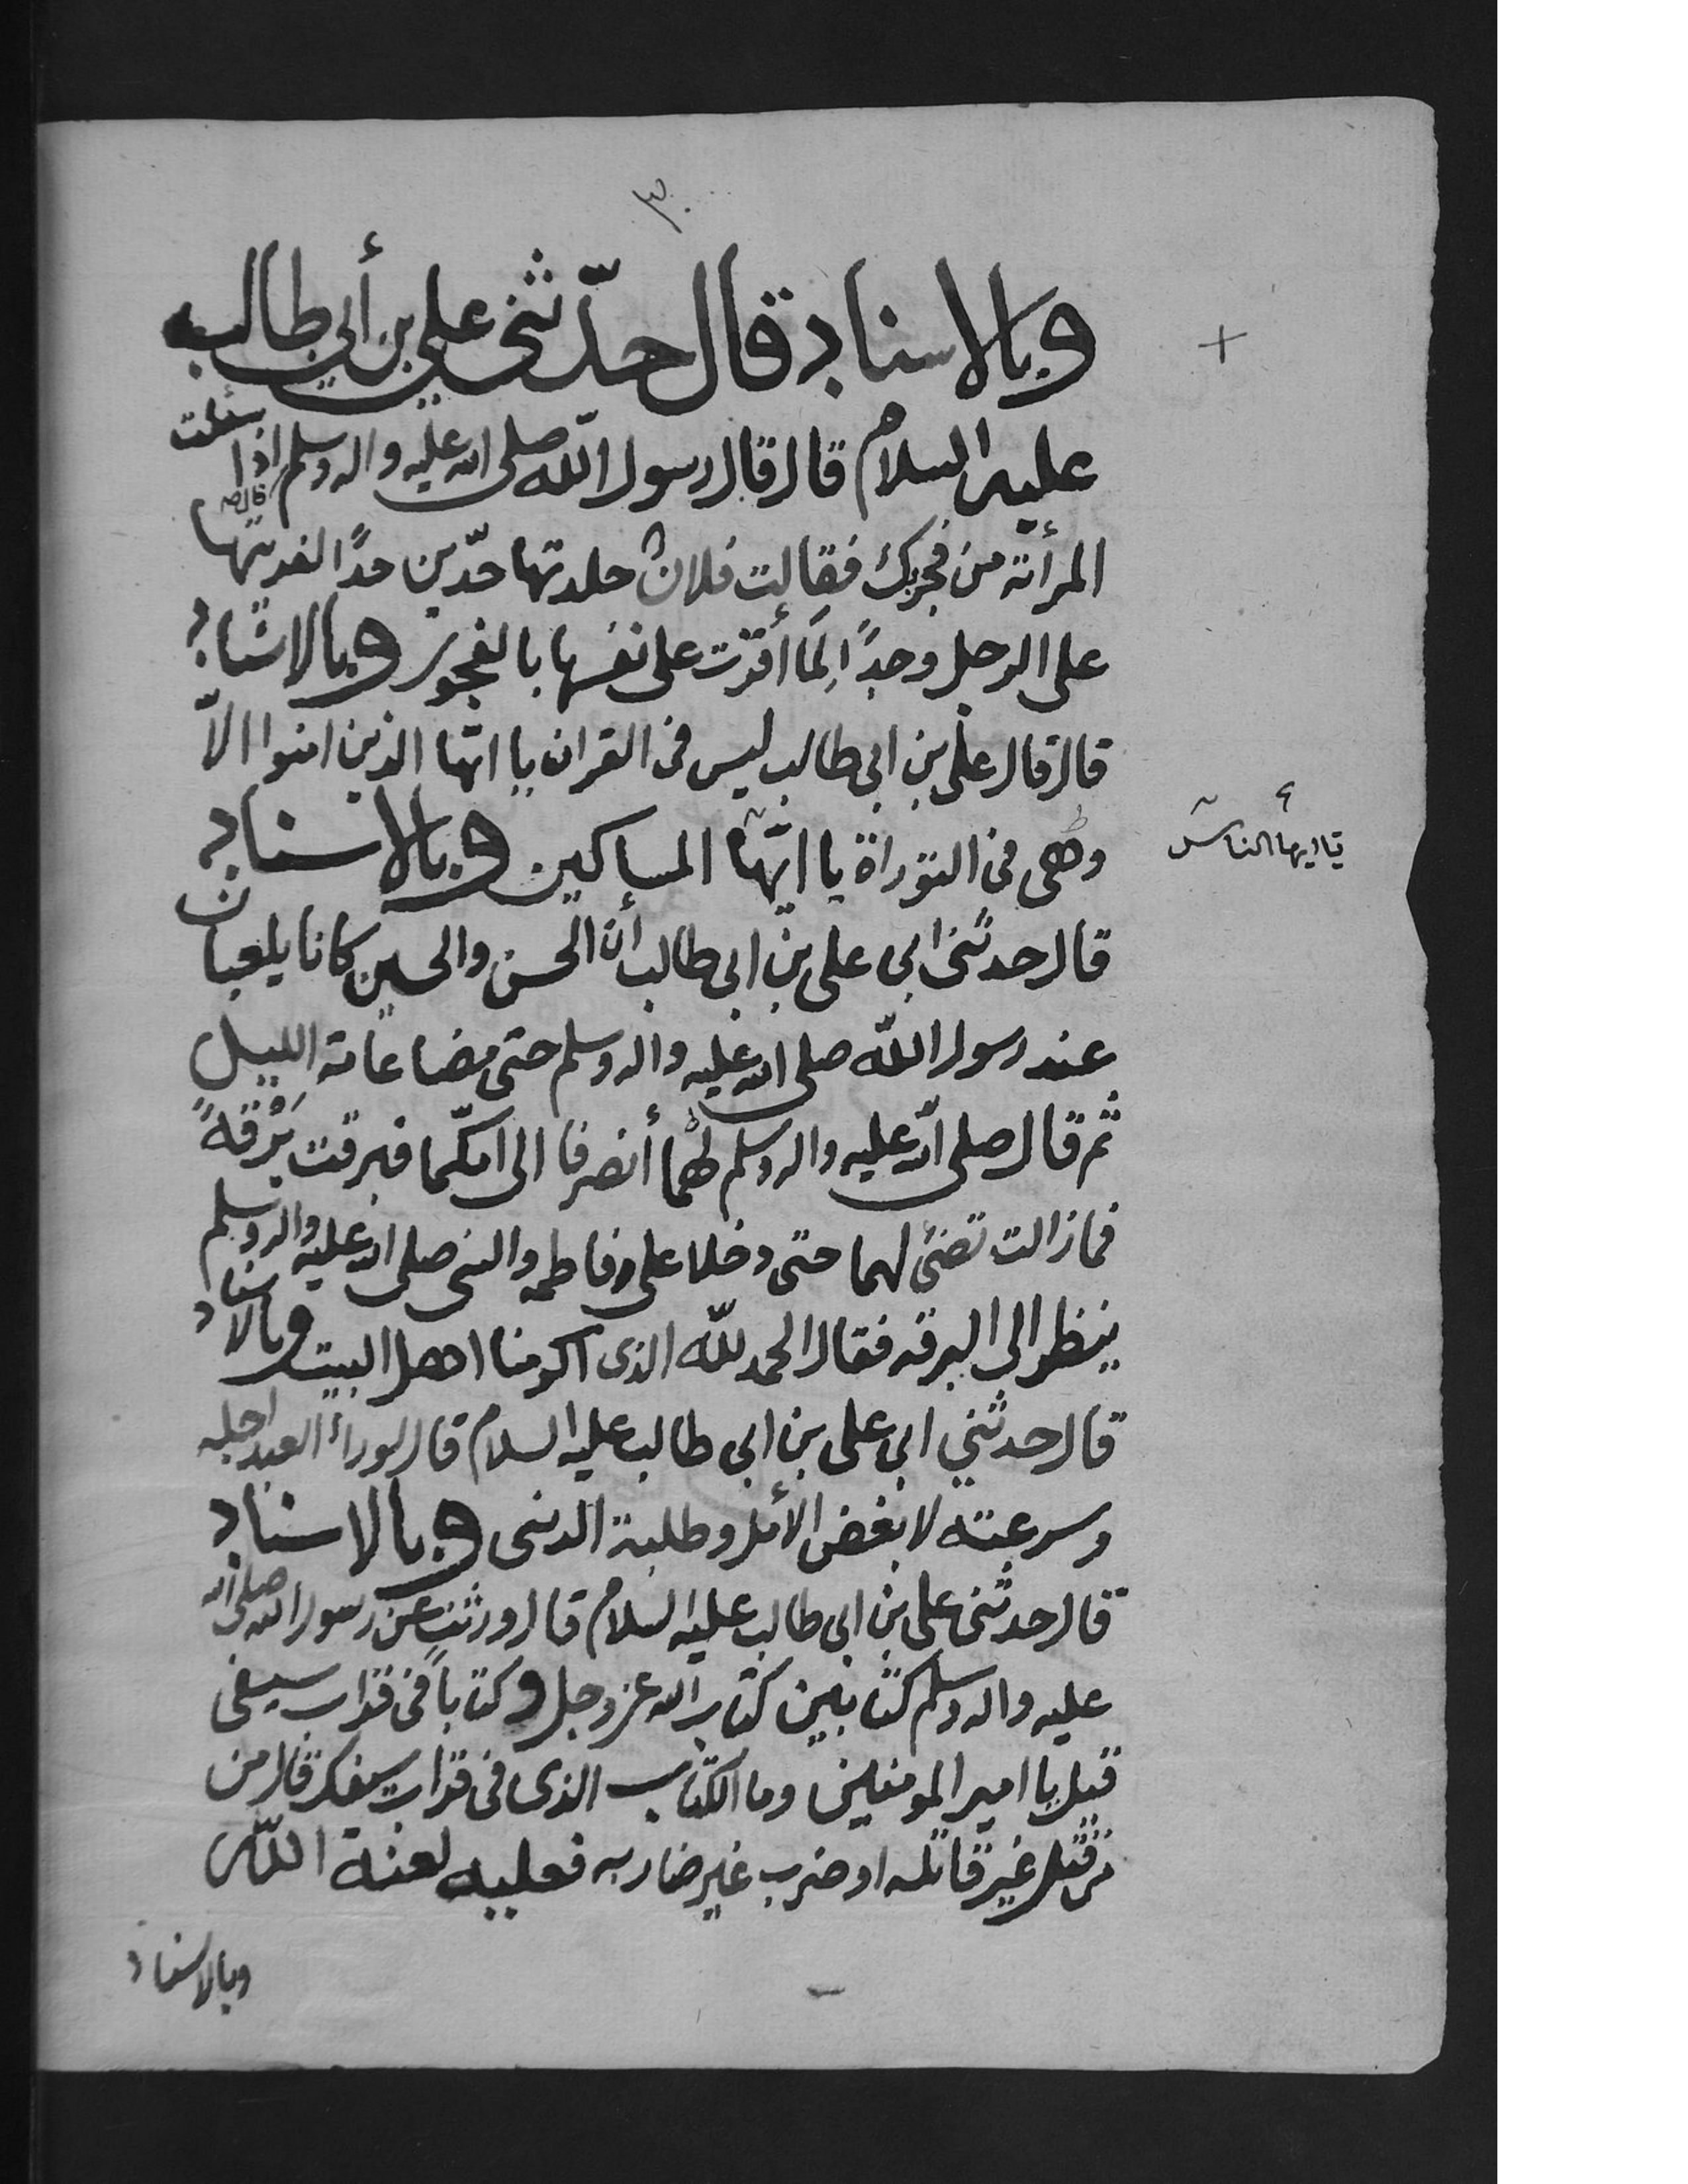 ٣٠
وبالاسناد قال حدّثني علي بن أبي طالب
عليه السلام قال قال رسول الله صلى الله عليه واله وسلم اذا سئلت
المرأة من فجر بك فقالت فلان جلدتها حدّين حدًا لفريتها
على الرجل وحدًا لِمَا أقرّت على نفسها بالفجور وبالاسناد
قال قال علي بن ابي طالب ليس في القران يا ايّها الذين امنوا الاّ
وهي في التوراة يا ايّها المساكين وبالاسناد
يا ايها الناس
قال حدثني ابي علي بن ابي طالب أن الحسن والحسين كانا يلعبان
عند رسول الله صلى الله عليه واله وسلم حتى مضا عامة الليل
ثم قال صلى الله عليه واله وسلم لهما أنصرفا الى امكّما فبرقت بَرْقةً
فما زالت تضئ لهما حتى دخلا على فاطمه والنبي صلى الله عليه واله وسلم
ينظر الى البرقه فقال الحمد لله الذي اكرمنا اهل البيت وبالاسناد
قال حدثني ابي علي بن ابي طالب عليه السلام قال لو رأ العبد اجله
وسرعته لابغض الأمل وطلبة الدنى وبالاسناد
قال حدثني علي بن ابي طالب عليه السلام قال ورثت عن رسول الله صلى الله
عليه واله وسلم كتابين كتاب الله عز وجل وكتاباً في قراب سيفى
قيل يا امير المومنين وما الكتاب الذي في قراب سيفك قال من
من قتل غير قاتله او ضرب غير ضاربه فعليه لعنة الله
وبالاسناد